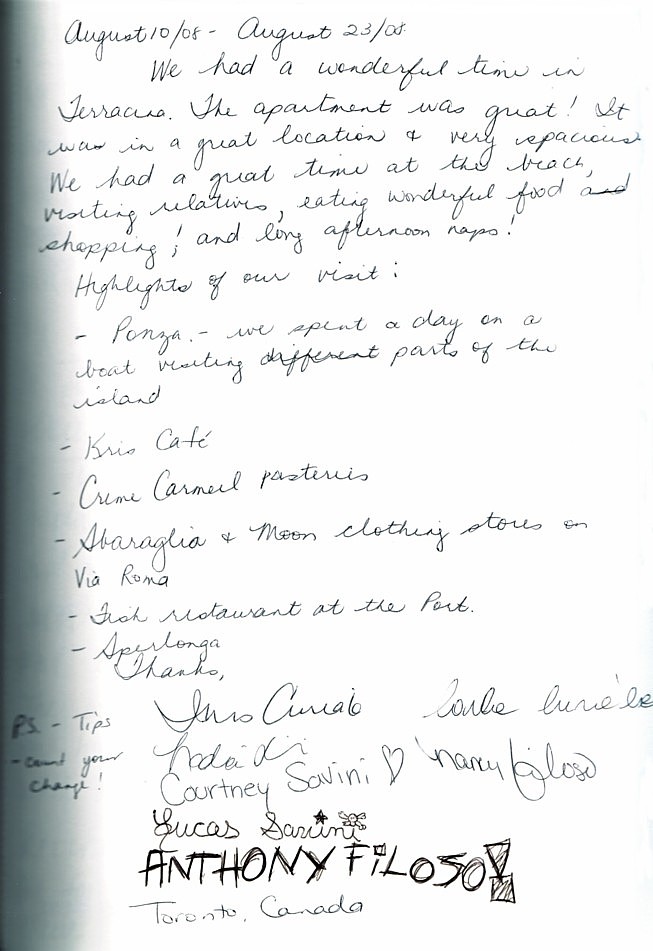 August 10/08 - August 23/08.
We had a wonderful time in
Terracina. The apartment was great! It
was in a great location & very spacious
We had a great time at the beach,
visiting relatives, eating wonderful food and
shopping; and long afternoon naps!
Highlights of our visit:
- Ponza. - we spent a day on a
boat visiting different parts of the
island
- Kris Café
- Creme Carmeil pasteries
- Sbaraglia & Moon clothing stores on
Via Roma
- Fish restaurant at the Port.
- Sperlonga
Thanks,
P.S. - Tips
- count your
change!
Courtney Savini
Nancy Filoso
Lucas Savini
ANTHONY FiLOSO!
Toronto, Canada